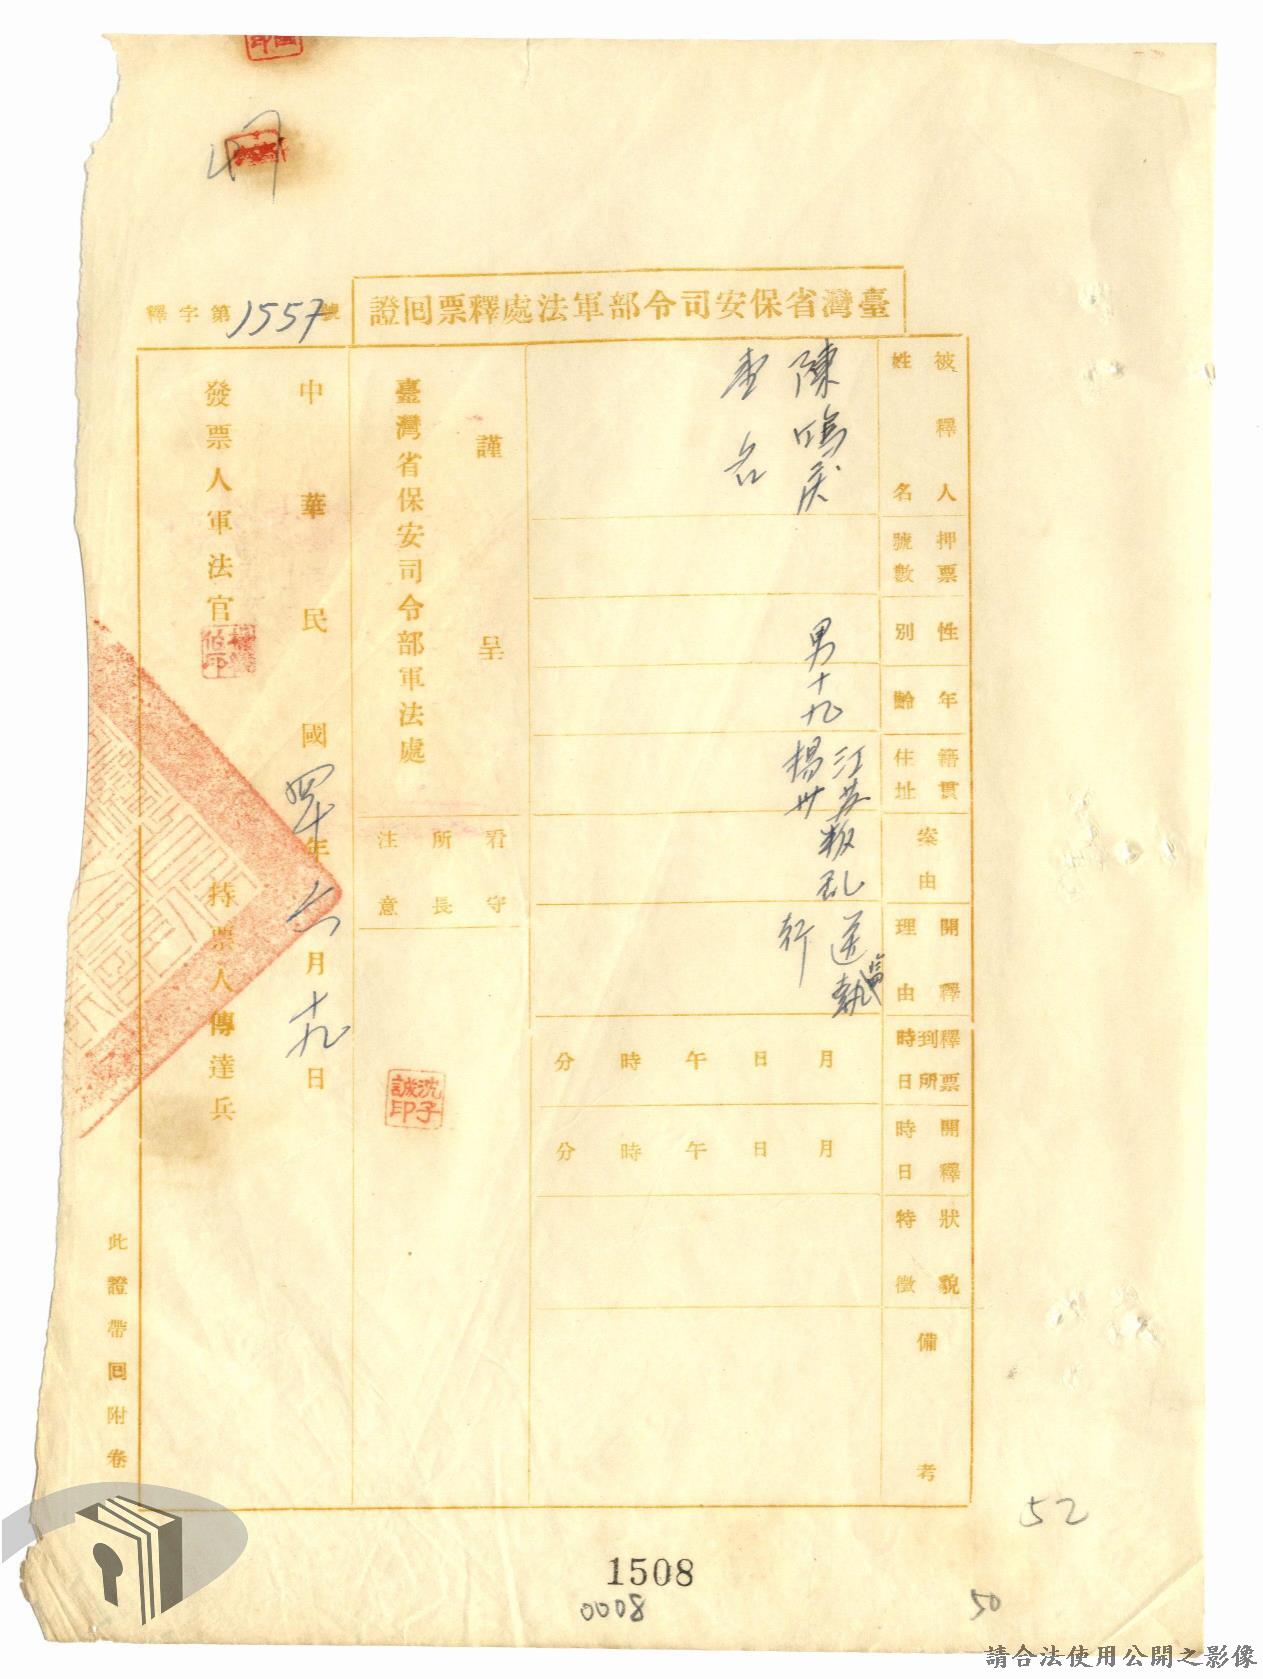 臺灣省保安司令部軍法處釋票囘證
釋字第1557號
被釋人姓名
陳鳴庆
壹名
押票號數
性別
男
年齡
十九
籍貫住址
江苏
揚州
案由
叛乱
開釋理由
送監執
行
釋票到所時日
月日午時分
開釋時日
月日午時分
狀貌特徵
備考
謹呈
臺灣省保安司令部軍法處
看守所長注意
沈子誠印
中華民國四十年六月十九日
發票人軍法官
持票人傳達兵
此證帶囘附卷
52
1508
0008
50
請合法使用公開之影像